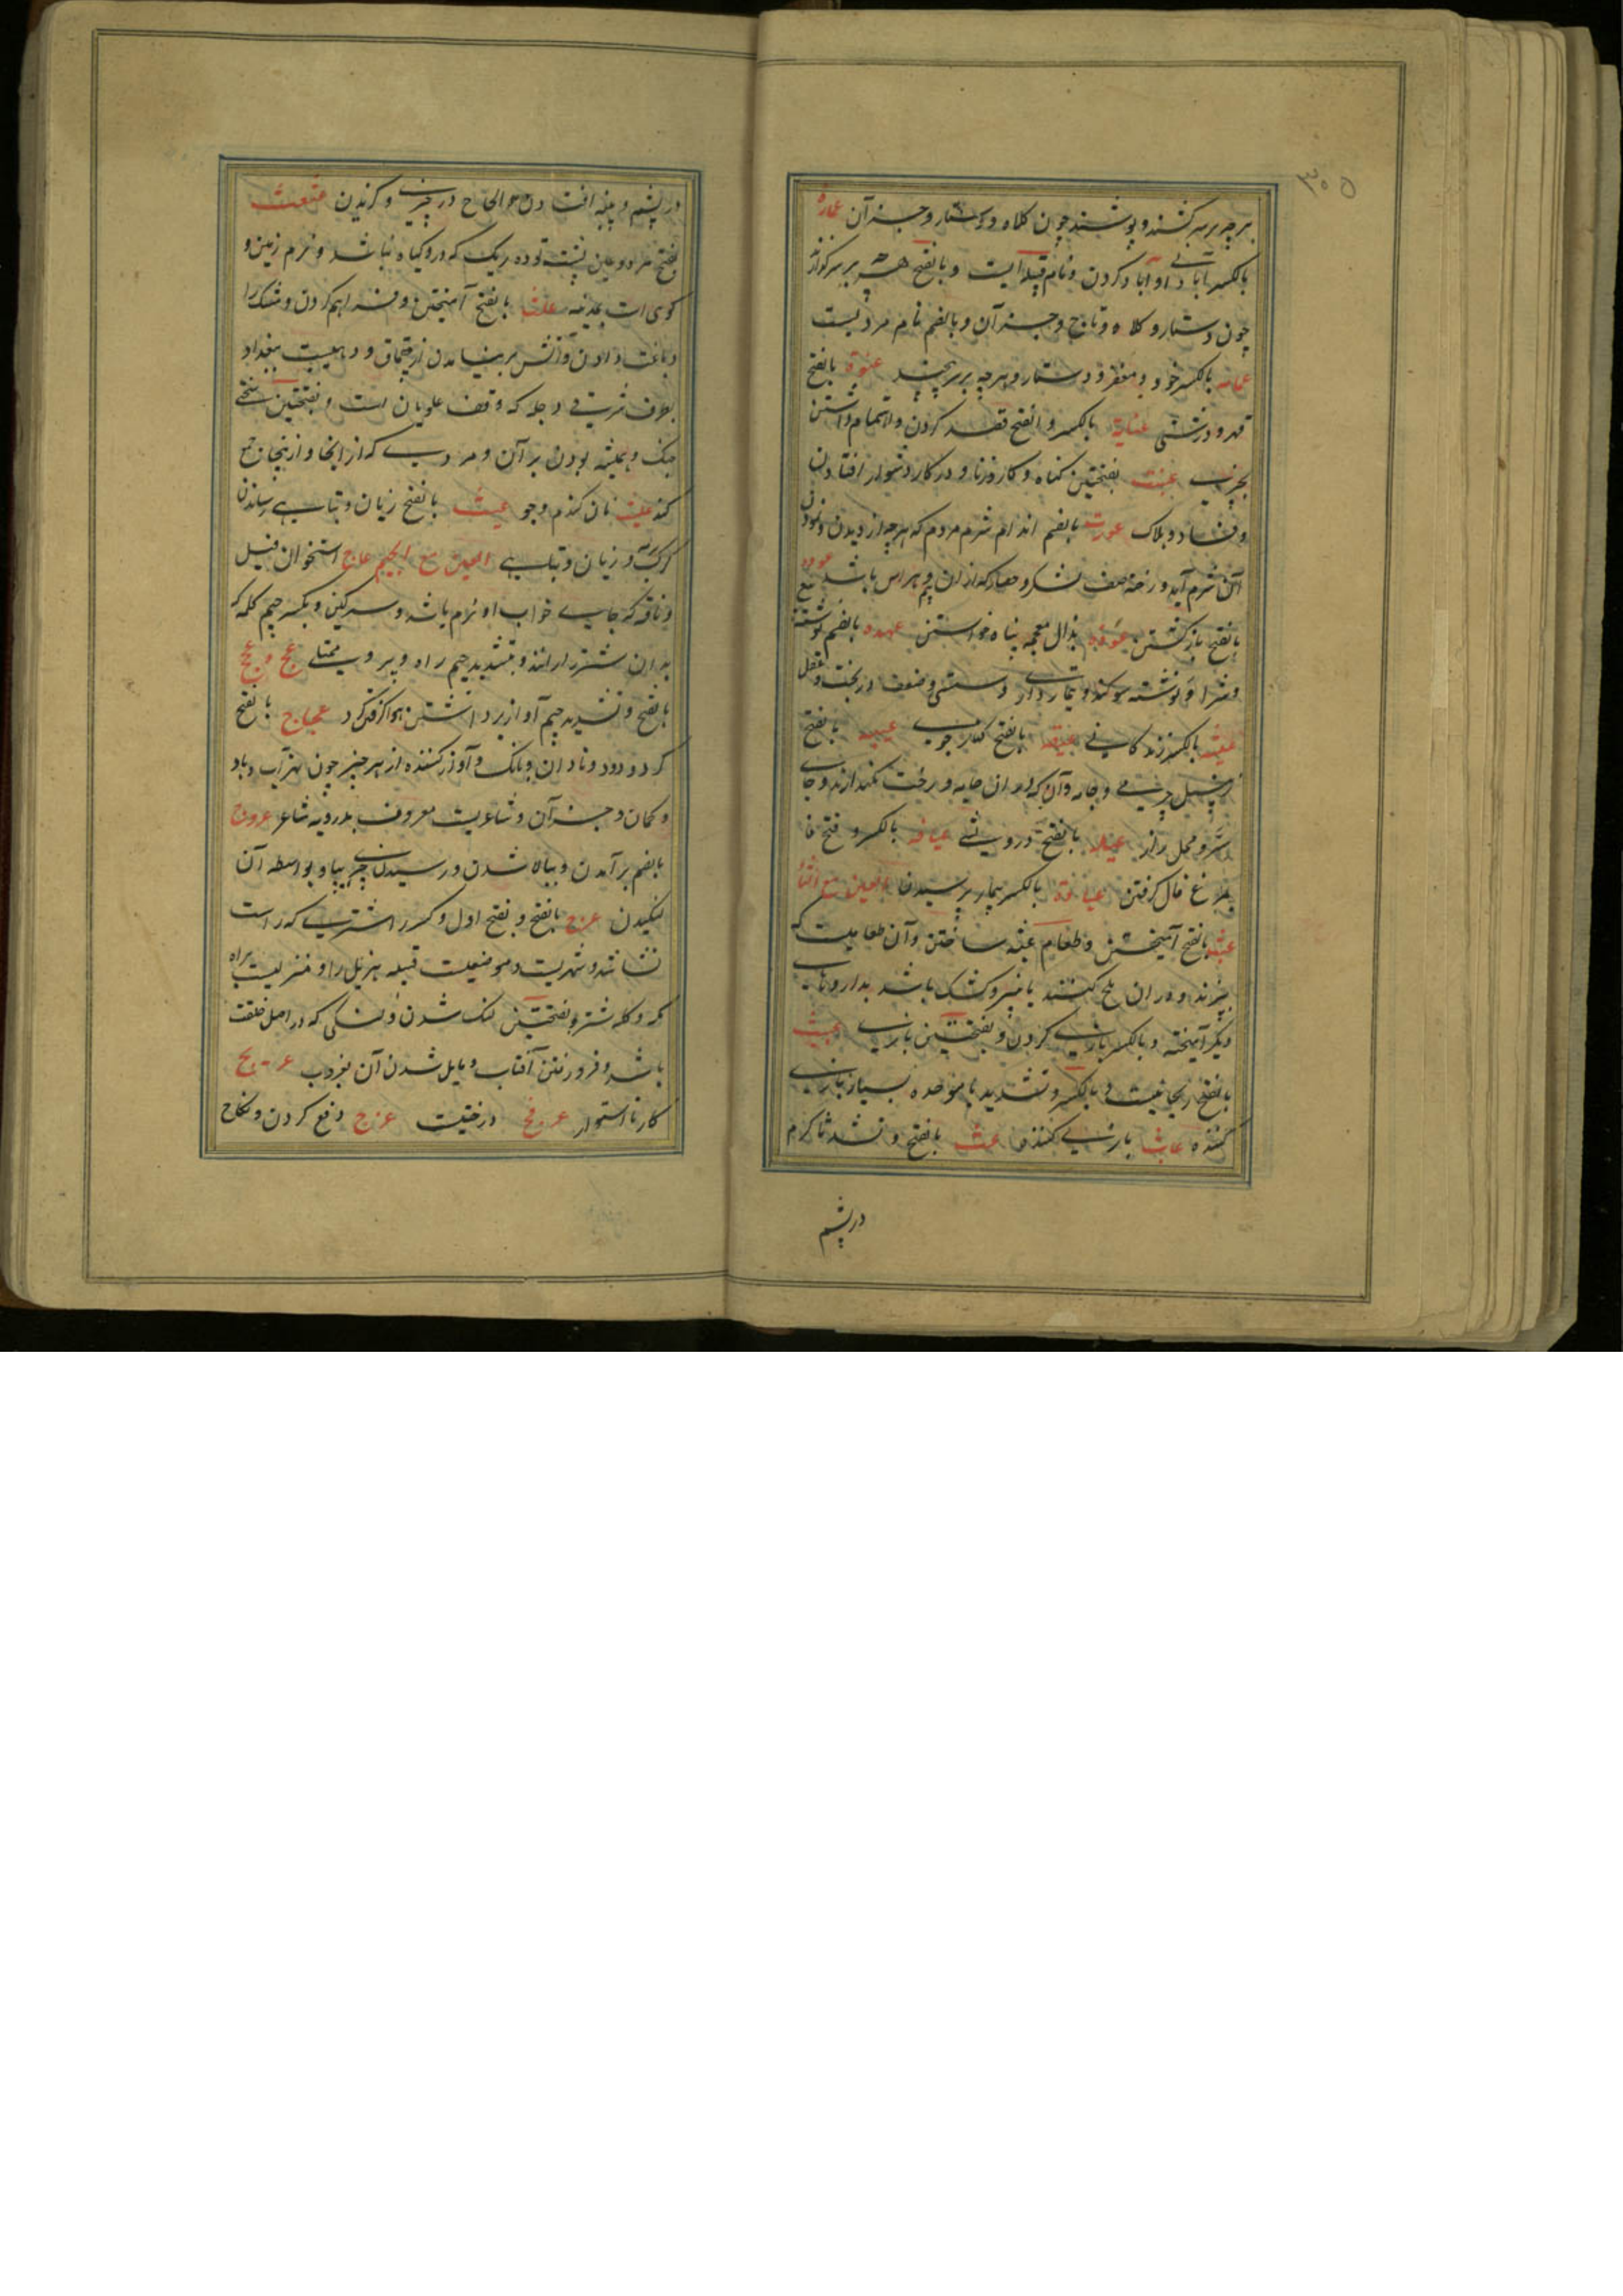 ۳۰۵
هرچه بر سر کشند و پوشند چون کلاه و دستار و جز آن عماره
بالکسر آبادانی و آباد کردن و نام قبیله‌ایست و بالفتح هرچه بر سر گذارند
چون دستار و کلاه و تاج و جز آن و بالضم نام مردیست
عمامه بالکسر خود و مغفر و دستار و هرچه بر سر پیچند عنوة بالفتح
قهر و درشتی عنایة بالکسر و الفتح قصد کردن و اهتمام داشتن
بچیزی عنت بفتحتین گناه و کار و زنا و در کار دشوار افتادن
و فساد و هلاک عورت بالفتح اندام شرم مردم که هرچه از دیدن و نمودن
آن شرم آید و رخنه صف لشکر و حصار که از آن بیم و هراس باشد عوده
بالفتح بازگشتن عوذه بذال معجمه پناه خواستن عهده بالضم نوشته
و شرا و نوشته سوگند و تیمارداری و سستی و ضعف در خط و عقل
عیشه بالکسر زندگانی بالفتح کنار جوی عیبه بالفتح
زنبیل چرمی و جامه‌دان که در آن جامه و رخت نگذارند و جای
سر و محل راز عیله بالفتح درویشی عیافه بالکسر و فتح فا
بمرغ فال گرفتن بالکسر بیمار پرسیدن العین مع الثاء
عبث بالفتح آمیختن و طعام عبثه ساختن و آن طعامیست که
بپزند و در آن ملخ کنند یا پنیر و کشک باشد بداروهای
دیگر آمیخته و بالکسر بازی کردن و بفتحتین بازی
بالفتح ریحانیست و بالکسر و تشدید با موحده بسیار بازی
کننده عابث بازی کننده عث بالفتح و تشدید ثا کرم
در پشم
در پشم و پنبه افتادن و الحاح در چیزی و گزیدن عثعث
بفتح هر دو عین پشت توده ریگ که درو گیاه نباشد و نرم زمین و
کوهی است بمدینه علث بالفتح آمیختن و فراهم کردن و مشک را
دباغت دادن و آتش بر نیامدن از چقماق و دهیست ببغداد
بطرف شرقی دجله که وقف علویان است و بفتحتین سختی
جنگ و همیشه بودن بر آن و مردی که از آنجا و از اینجا جمع
کند علیث نان گندم و جو عیث بالفتح زیان و تباهی رساندن
گرگ و زیان و تباهی العین مع الجیم عاج استخوان فیل
و ناقه که جای خواب او نرم باشد و سرگین و بکسر جیم کلمه که
بدان شتر را رانند و بتشدید جیم راه و پر و ممتلی عج و عجیج
بالفتح و تشدید جیم آواز برداشتن عجاج بالفتح
گرد و دود و نادان و بانگ و آواز کننده از هر چیز چون نهر آب و باد
و کمان و جز آن و شاعریست معروف پدر رؤبه شاعر عروج
بالضم بر آمدن و ببالا شدن و رسیدن چیزی بپا و بواسطه آن
لنگیدن عرج بالفتح و بفتح اول و کسر را شتری که راست
نشاشد و شهریست و موضعیست قبیله هذیل را و منزلیست براه
مکه و گله شتر و بفتحتین لنگ شدن و لنگی که در اصل خلقت
باشد و فرو رفتن آفتاب و مایل شدن آن بغروب عریج
کار نااستوار عرفج درختیست عزج دفع کردن و نکاح